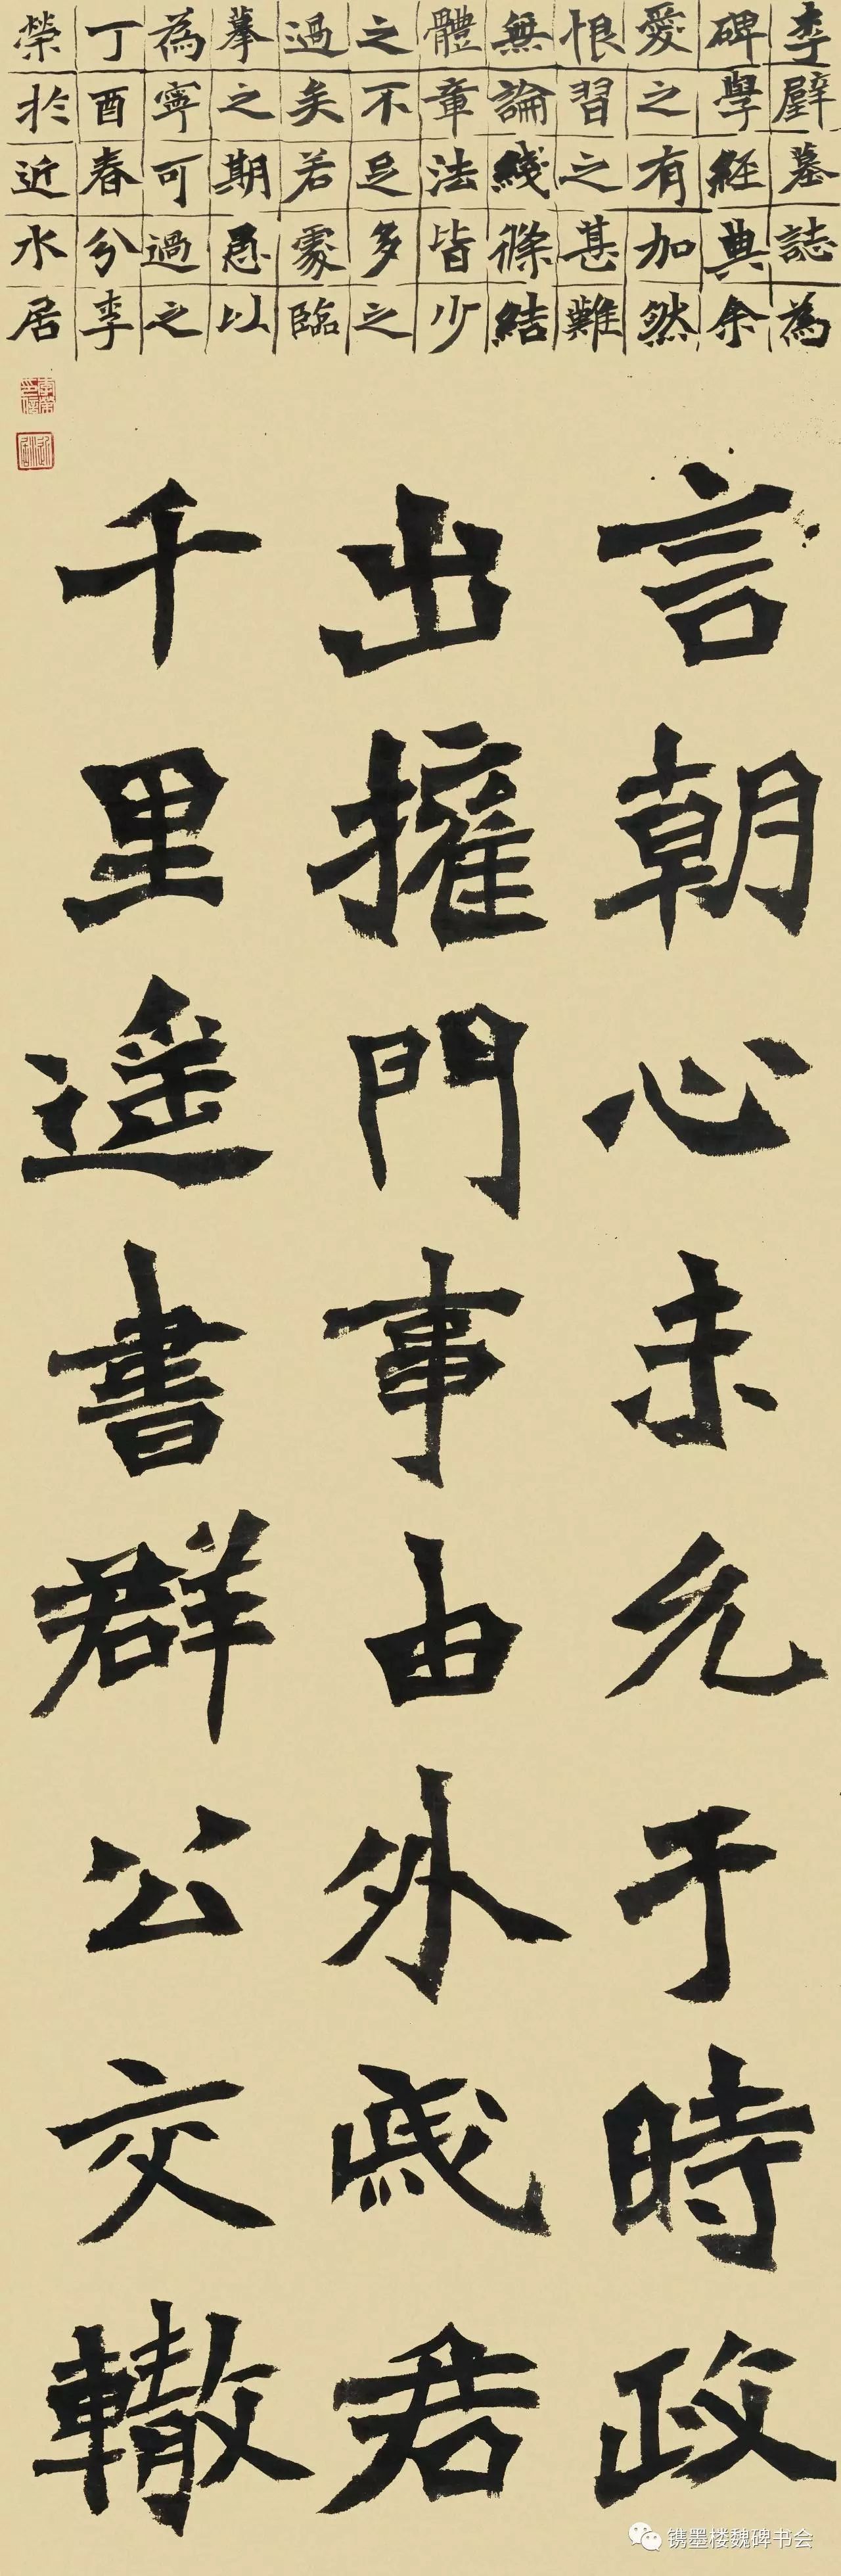 李璧墓誌為
碑學經典余
愛之有加然
恨習之甚難
無論綫條結
體章法皆少
之不足多之
過矣若處臨
摹之期愚以
為寧可過之
丁酉春分李
榮於近水居
言朝心未允于時政
出擁門事由外戚君
千里遥書群公交轍
镌墨楼魏碑书会